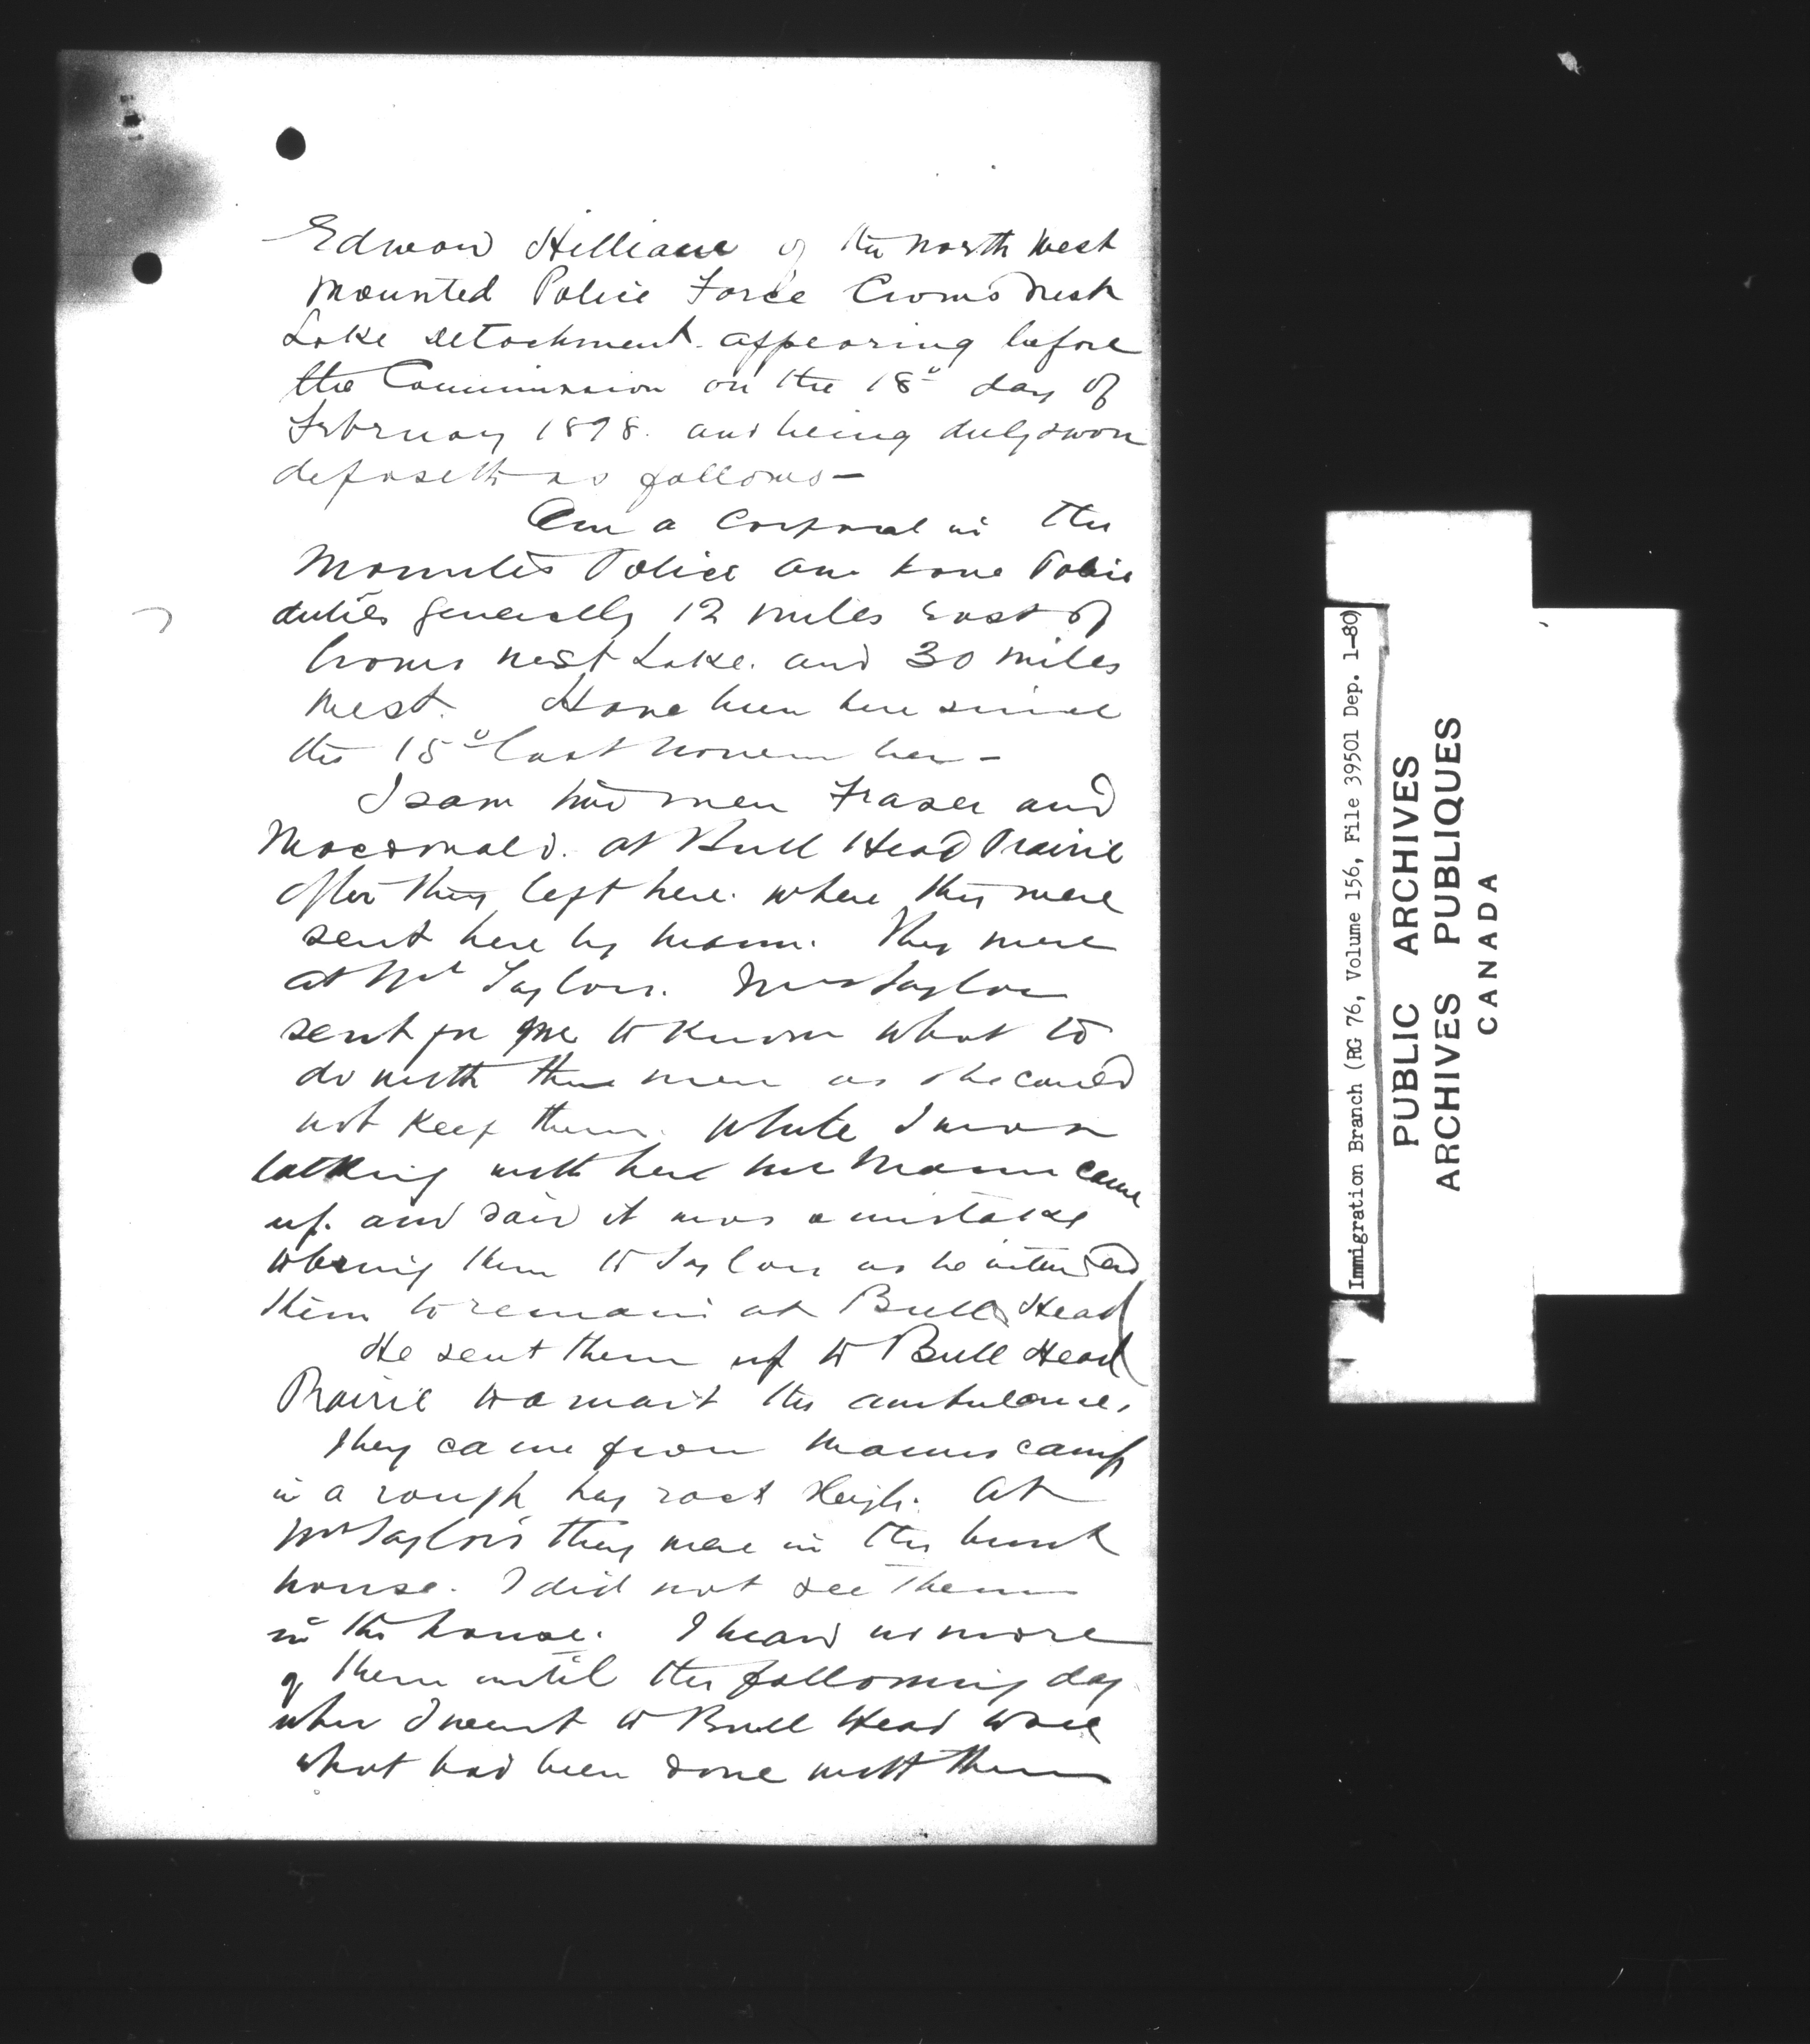 Edward Hilliard of the North West
Mounted Police Force Crows Nest
Lake detachment. appearing before
the Commission on the 18th day of
February 1898. and being duly sworn
deposeth as follows—
Am a Corporal in the
Mounted Police and have Police
duties generally 12 miles East of
Crows nest Lake. and 30 miles
West. Have been here since
the 15th last November—
I saw two men Fraser and
Macdonald. at Bull Head Prairie
after they left here. when they were
sent here by Mann. They were
at Mrs Taylors. Mrs Taylor
sent for me to know what to
do with these men as she could
not keep them. While I was
talking with her Mr Mann came
up. and said it was a mistake
to bring them to Taylors as he intended
them to remain at Bull Head
He sent them up to Bull Head
Prairie to await the ambulance.
They came from Manns camp
in a rough hay rack sleigh. At
Mrs Taylors they were in the bunk
house. I did not see them
in the house. I heard no more
of them until the following day
when I went to Bull Head to see
what had been done with them
Immigration Branch (RG 76, Volume 156, File 39501 Dep. 1-80)
PUBLIC ARCHIVES
ARCHIVES PUBLIQUES
CANADA